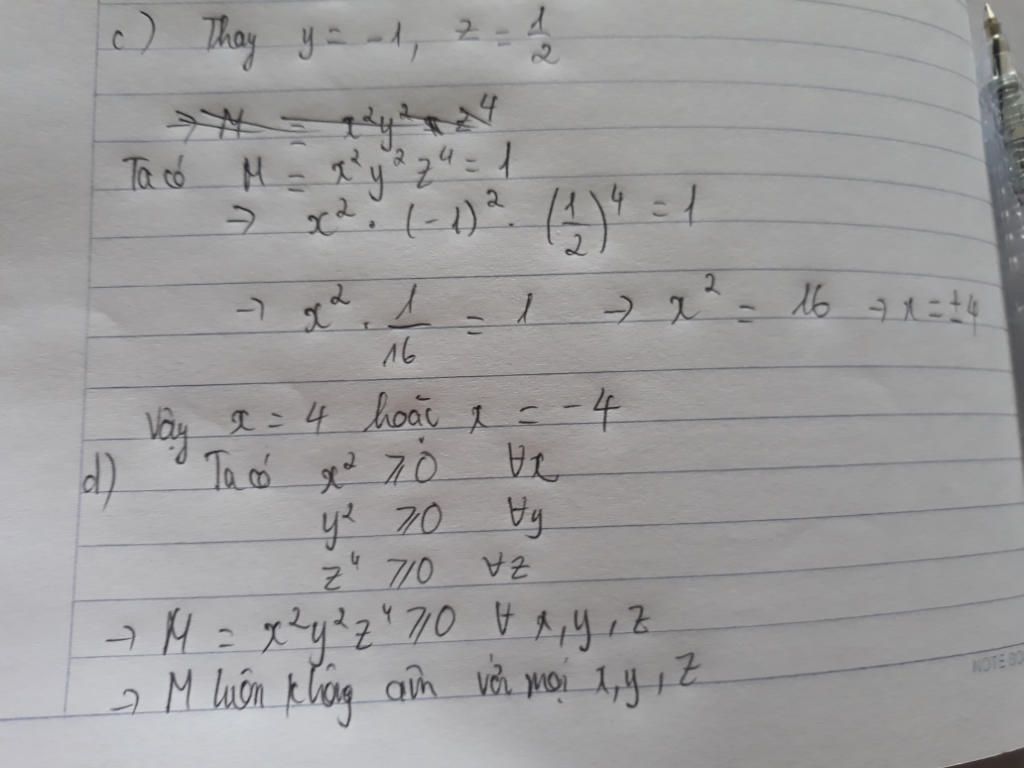 c) Thay y = -1, z = 1/2
→ M = x²y² z⁴
Ta có M = x²y²z⁴ = 1
→ x² . (-1)² . (1/2)⁴ = 1
→ x² . 1/16 = 1 → x² = 16 → x = ±4
Vậy x = 4 hoặc x = -4
d) Ta có x² ⩾ 0 ∀x
y² ⩾ 0 ∀y
z⁴ ⩾ 0 ∀z
→ M = x²y²z⁴ ⩾ 0 ∀ x, y, z
→ M luôn không âm với mọi x, y, z
NOTE BO